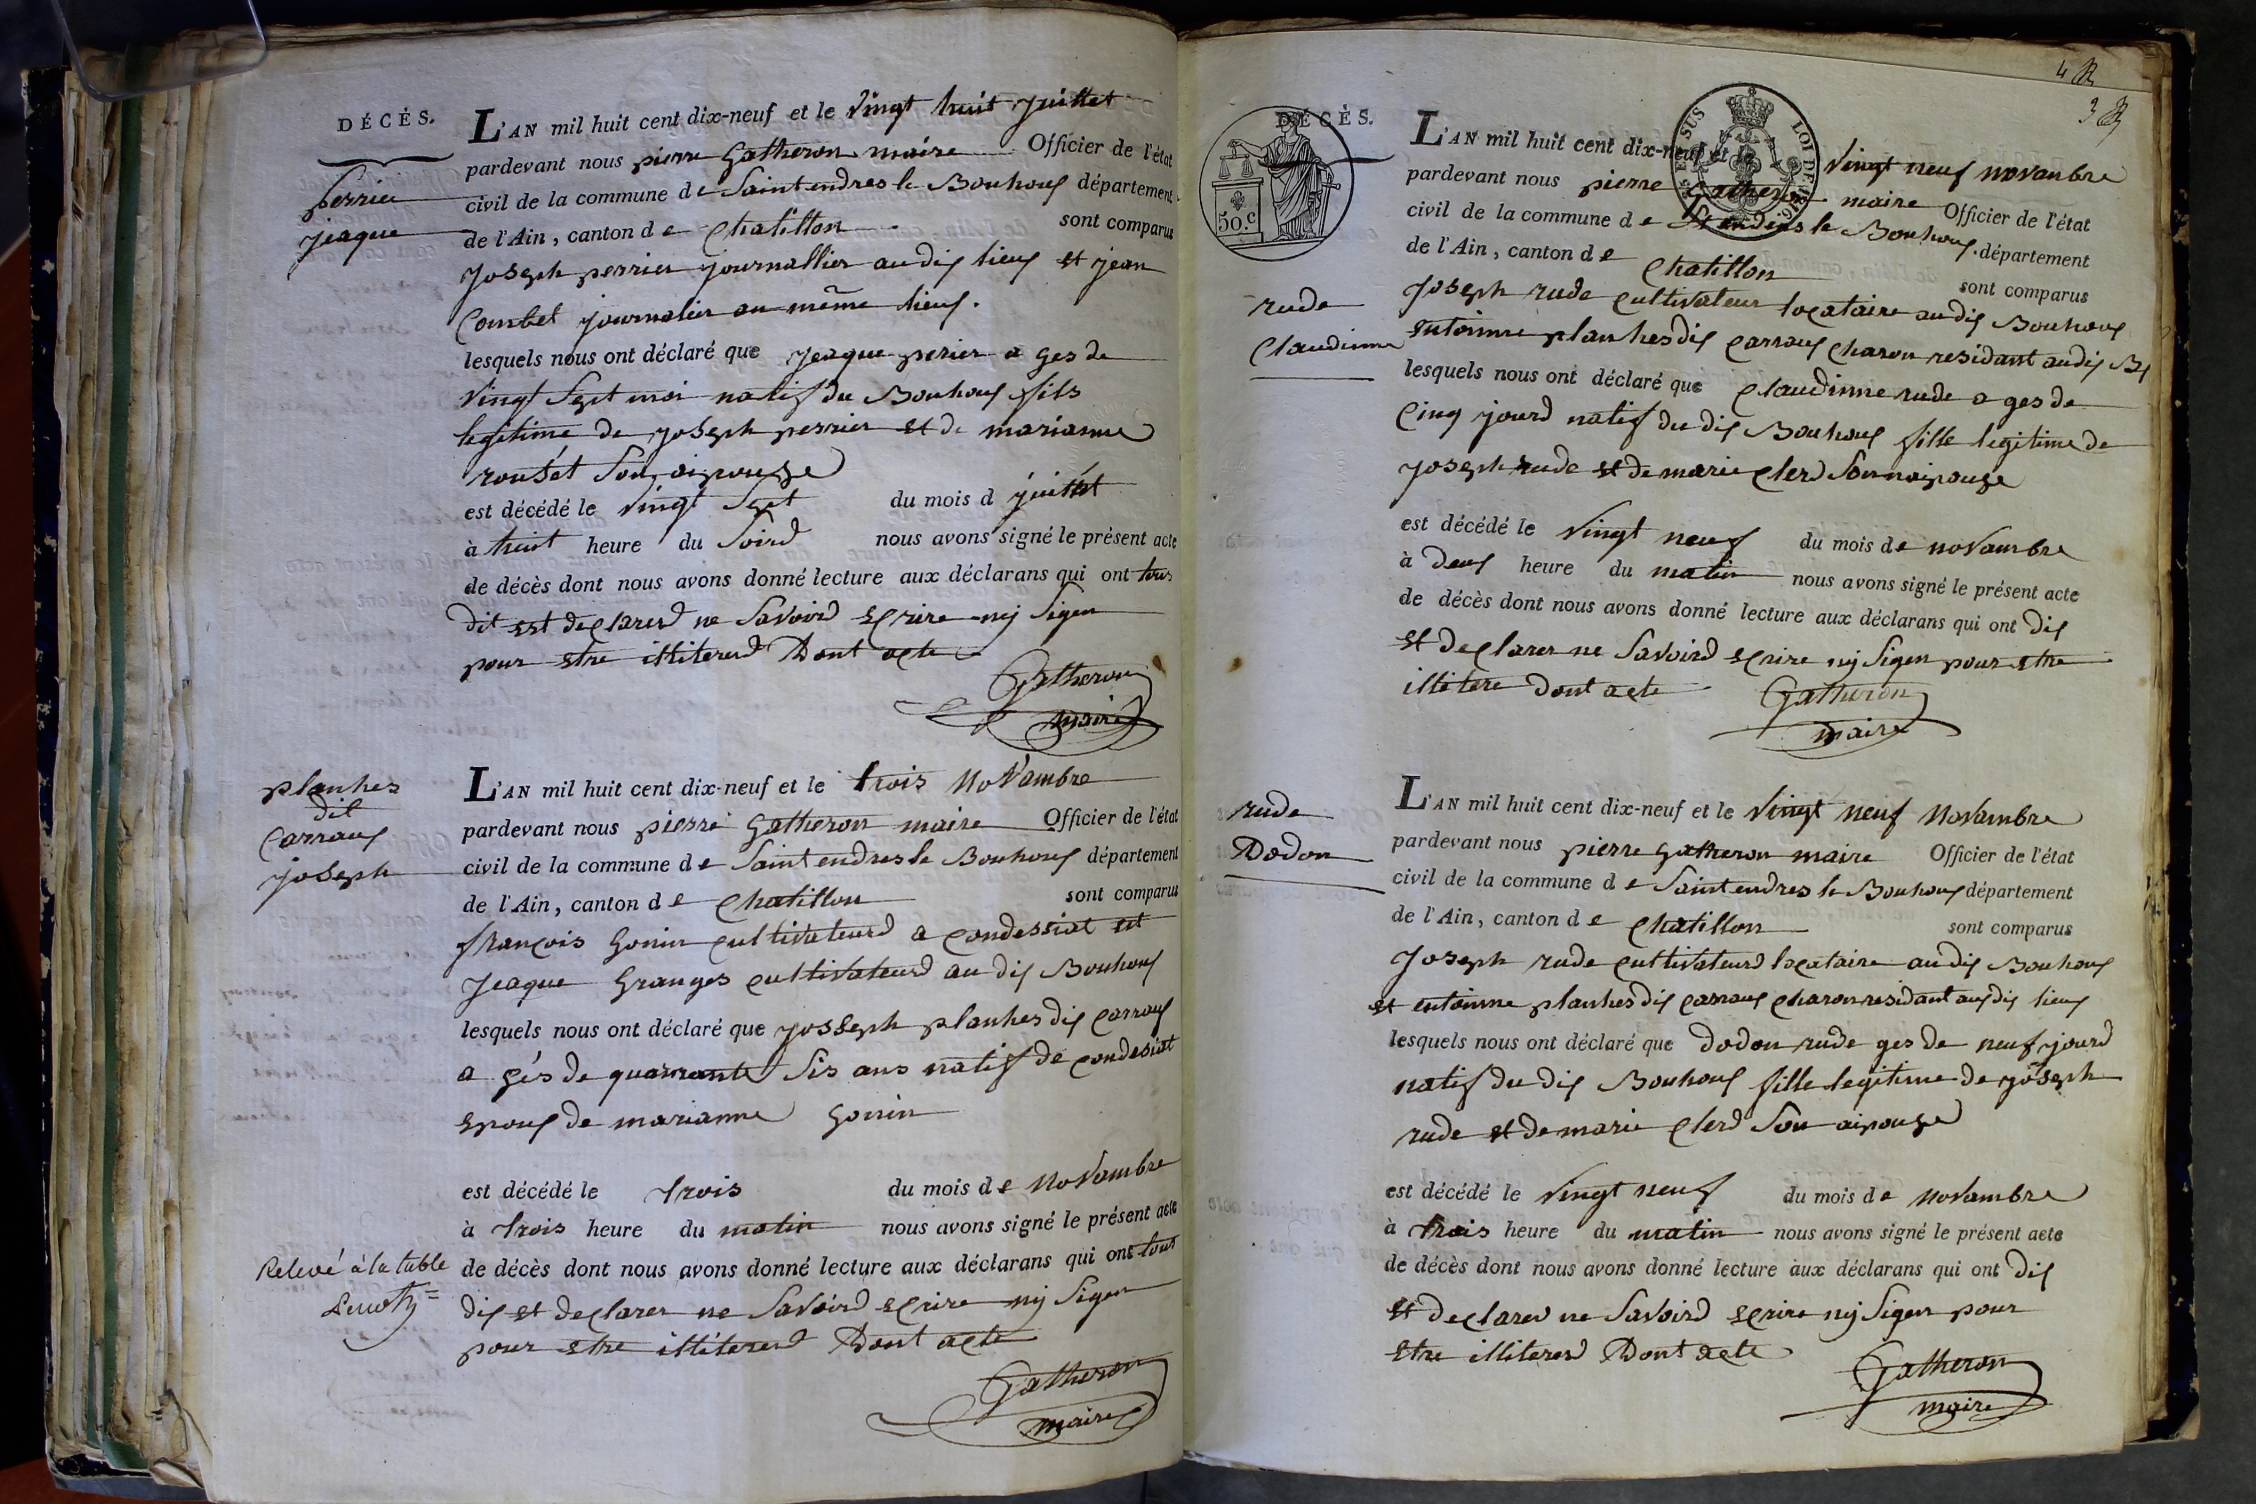 DÉCÈS.
perrier
jeaque
L'AN mil huit cent dix-neuf et le vingt huit juillet
pardevant nous pierre Gatheron maire Officier de l'état
civil de la commune de Saint endres le Bouhouf département
de l'Ain, canton de Chatillon sont comparus
joseph perrier journallier au dis lieuf et jean
Combet journalier au même lieuf.
lesquels nous ont déclaré que jeaque perier a ges de
vingt sept moi natif du Bouhouf fils
legitime de joseph perrier et de marianne
rousét son aipouse
est décédé le vingt sept du mois d juillet
à huit heure du soird nous avons signé le présent acte
de décès dont nous avons donné lecture aux déclarans qui ont tous
dit est declarerd ne savoird ecrire nij sigen
pour etre illitererd Dont acte
Gatheron
maire
planhes
dit
Carrauf
joseph
L'AN mil huit cent dix-neuf et le trois Novambre
pardevant nous pierre Gatheron maire Officier de l'état
civil de la commune de Saint endres le Bouhouf département
de l'Ain, canton de Chatillon sont comparus
françois Gonin cultivateurd a Condessiat et
jeaque Granges cultivateurd au dis Bouhouf
lesquels nous ont déclaré que josseph planhes dis Carrauf
a gés de quarrante sis ans natif de Condesiat
epouf de marianne Gonin
est décédé le trois du mois de Novambre
à trois heure du matin nous avons signé le présent acte
Relevé à la table
de décès dont nous avons donné lecture aux déclarans qui ont tous
dis et declarer ne savoird ecrire nij sigen
pour etre illitererd Dont acte
Gatheron
maire
4
3
DÉCÈS.
50.c
EN SUS
LOI DE 1816.
rude
Claudinne
L'AN mil huit cent dix-neuf et le vingt neuf novanbre
pardevant nous pierre Gatheron maire Officier de l'état
civil de la commune de St endres le Bouhouf département
de l'Ain, canton de Chatillon sont comparus
joseph rude cultivateur locataire au dis Bouhouf
entoinne planhes dis Carrauf charon residant au dis
lesquels nous ont déclaré que Claudinne rude a ges de
cinq jourd natif du dis Bouhouf fille legitime de
joseph rude et de marie Clerd son naipouse
est décédé le vingt neuf du mois de novambre
à deuf heure du matin nous avons signé le présent acte
de décès dont nous avons donné lecture aux déclarans qui ont dis
et declarer ne savoird ecrire nij sigen pour etre
illitere dont acte
Gatheron
maire
rude
Dodon
L'AN mil huit cent dix-neuf et le vingt neuf Novambre
pardevant nous pierre Gatheron maire Officier de l'état
civil de la commune de Saint endres le Bouhouf département
de l'Ain, canton de Chatillon sont comparus
joseph rude cultivateurd locataire au dis Bouhouf
et entoinne planhes dis Carrauf charon residant au dis lieuf
lesquels nous ont déclaré que dodon rude ges de neuf jourd
natif du dis Bouhouf fille legitime de joseph
rude et de marie Clerd son aipouse
est décédé le vingt neuf du mois de Novambre
à trois heure du matin nous avons signé le présent acte
de décès dont nous avons donné lecture aux déclarans qui ont dis
et declared ne savoird ecrire nij sigen pour
etre illitererd Dont acte
Gatheron
maire